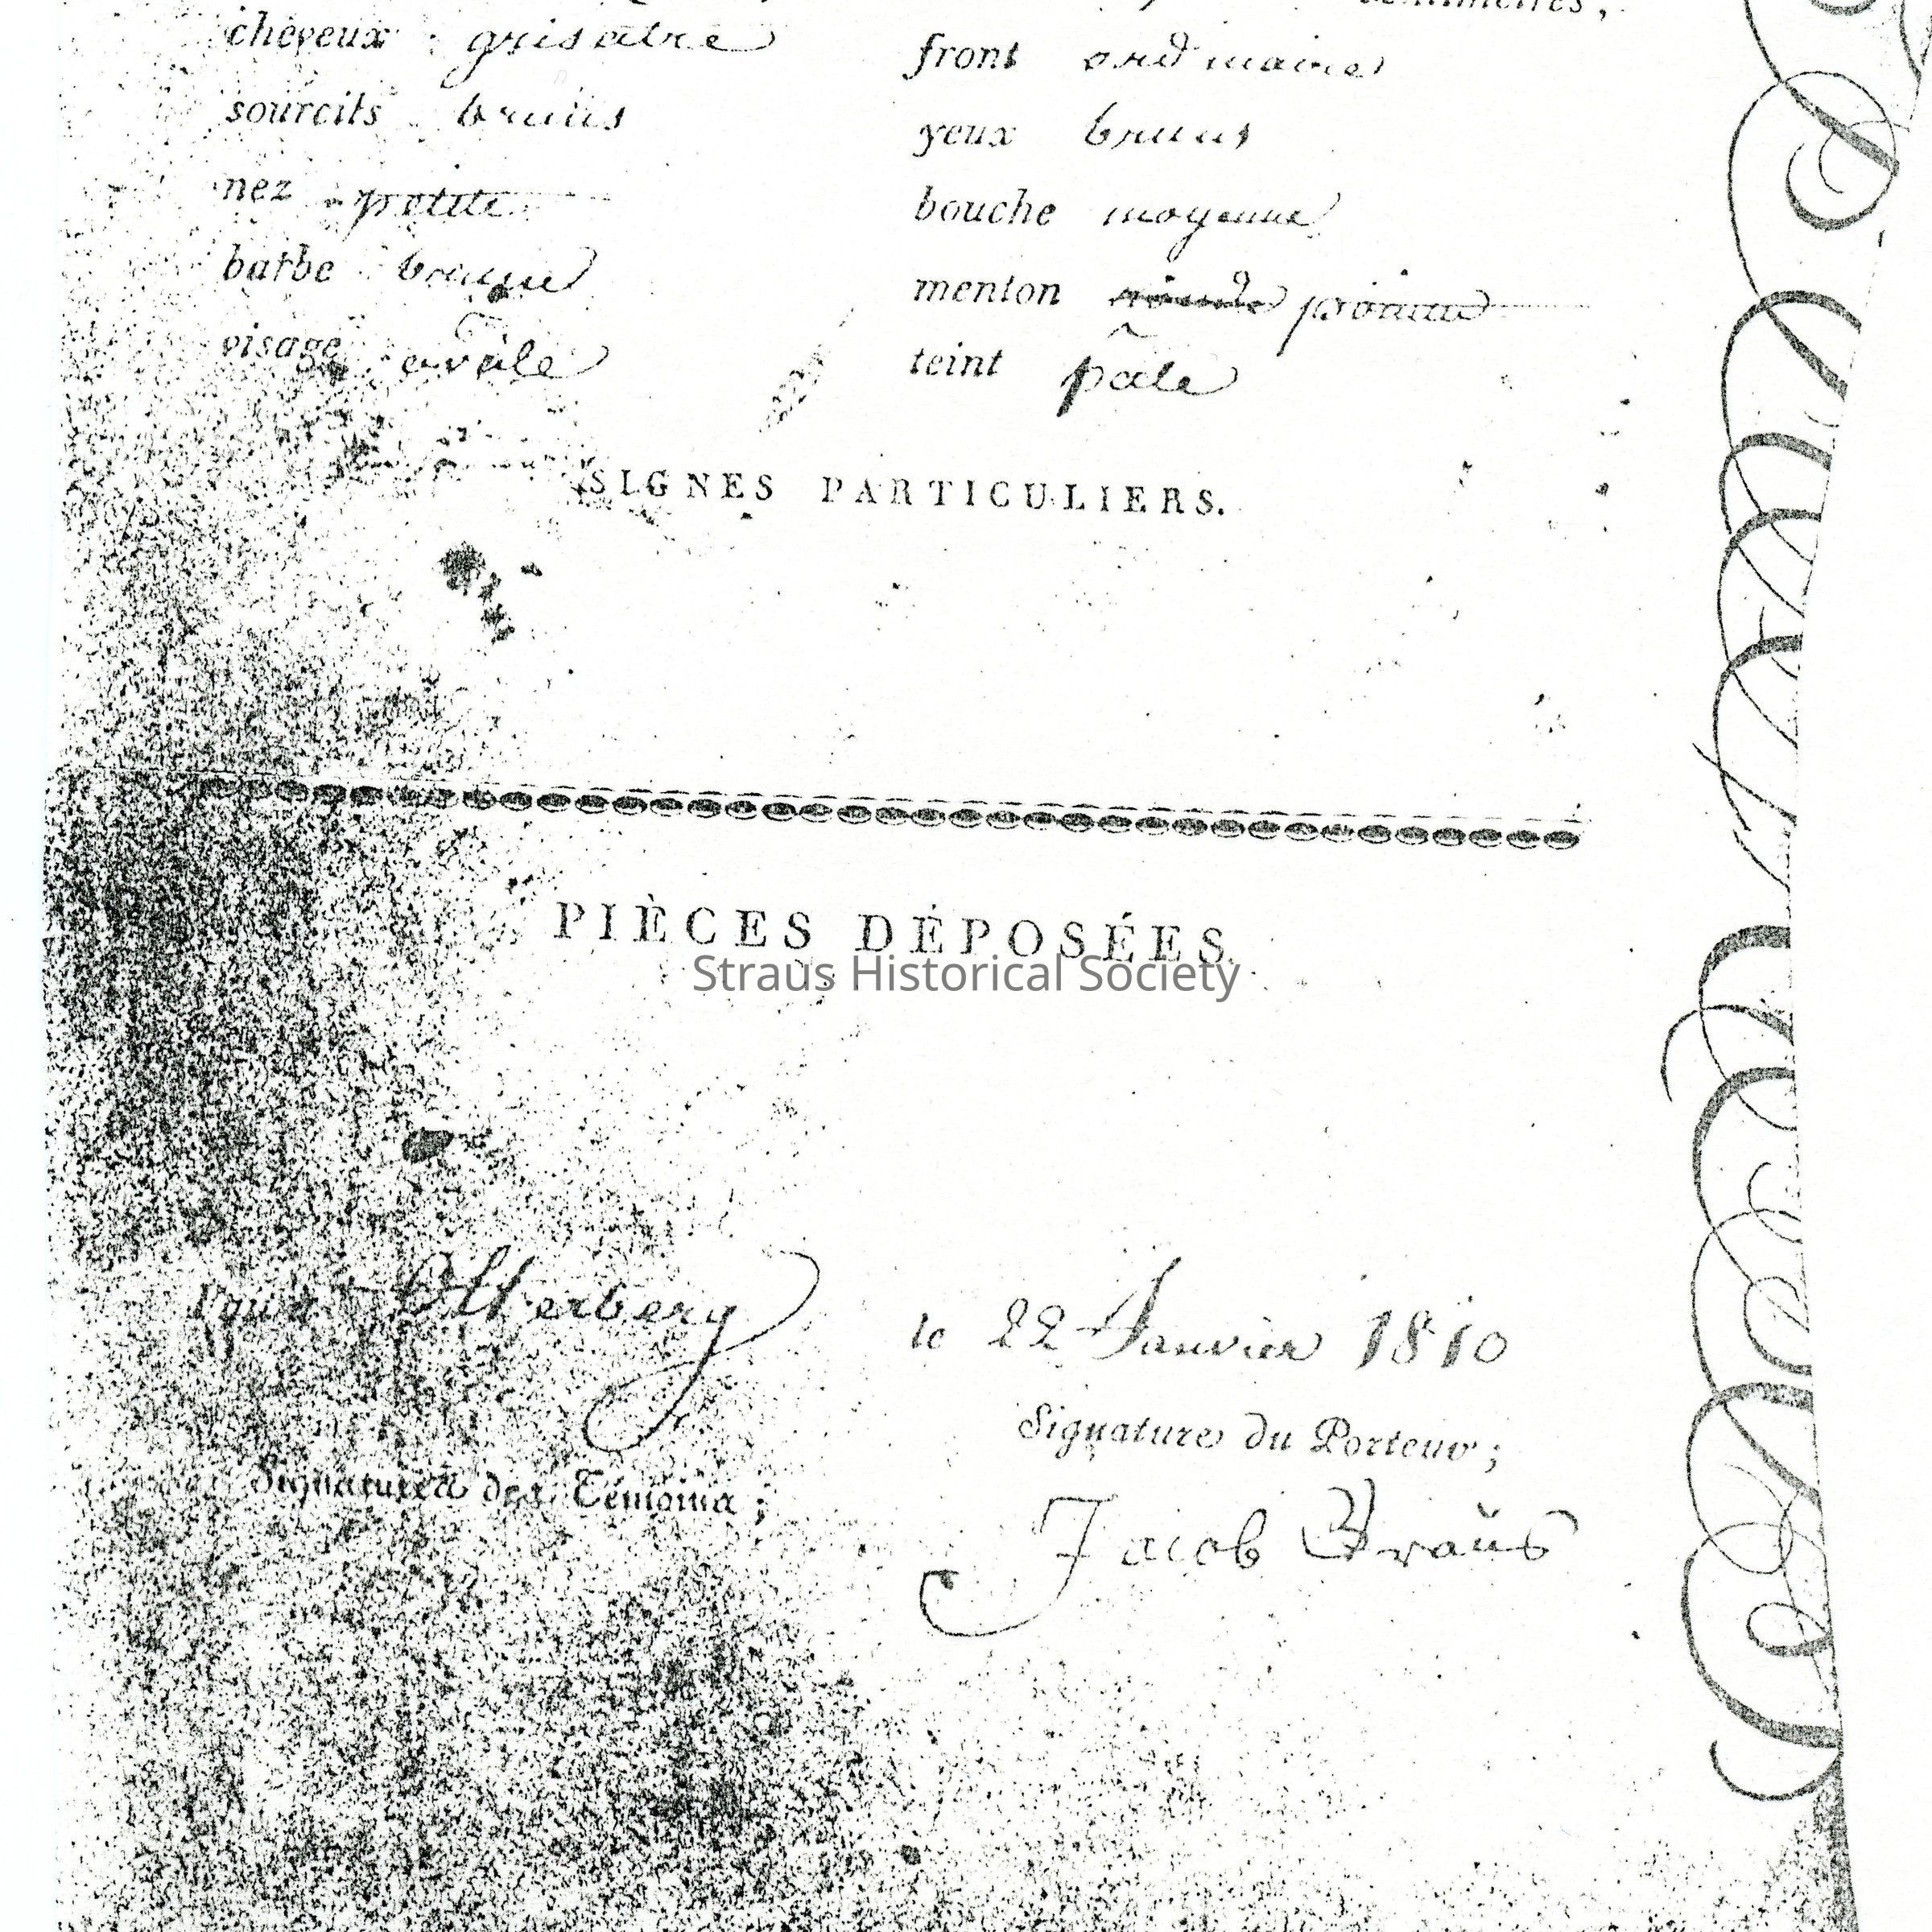 cheveux grisatre front ordinaire
sourcils bruns yeux bruns
nez petite bouche moyenne
barbe brune menton
visage ovale teint pâle
SIGNES PARTICULIERS.
PIÈCES DÉPOSÉES.
Straus Historical Society
Otterberg le 22 Janvier 1810
Signature du Porteur;
Signatures des Témoins;
Jacob Straus